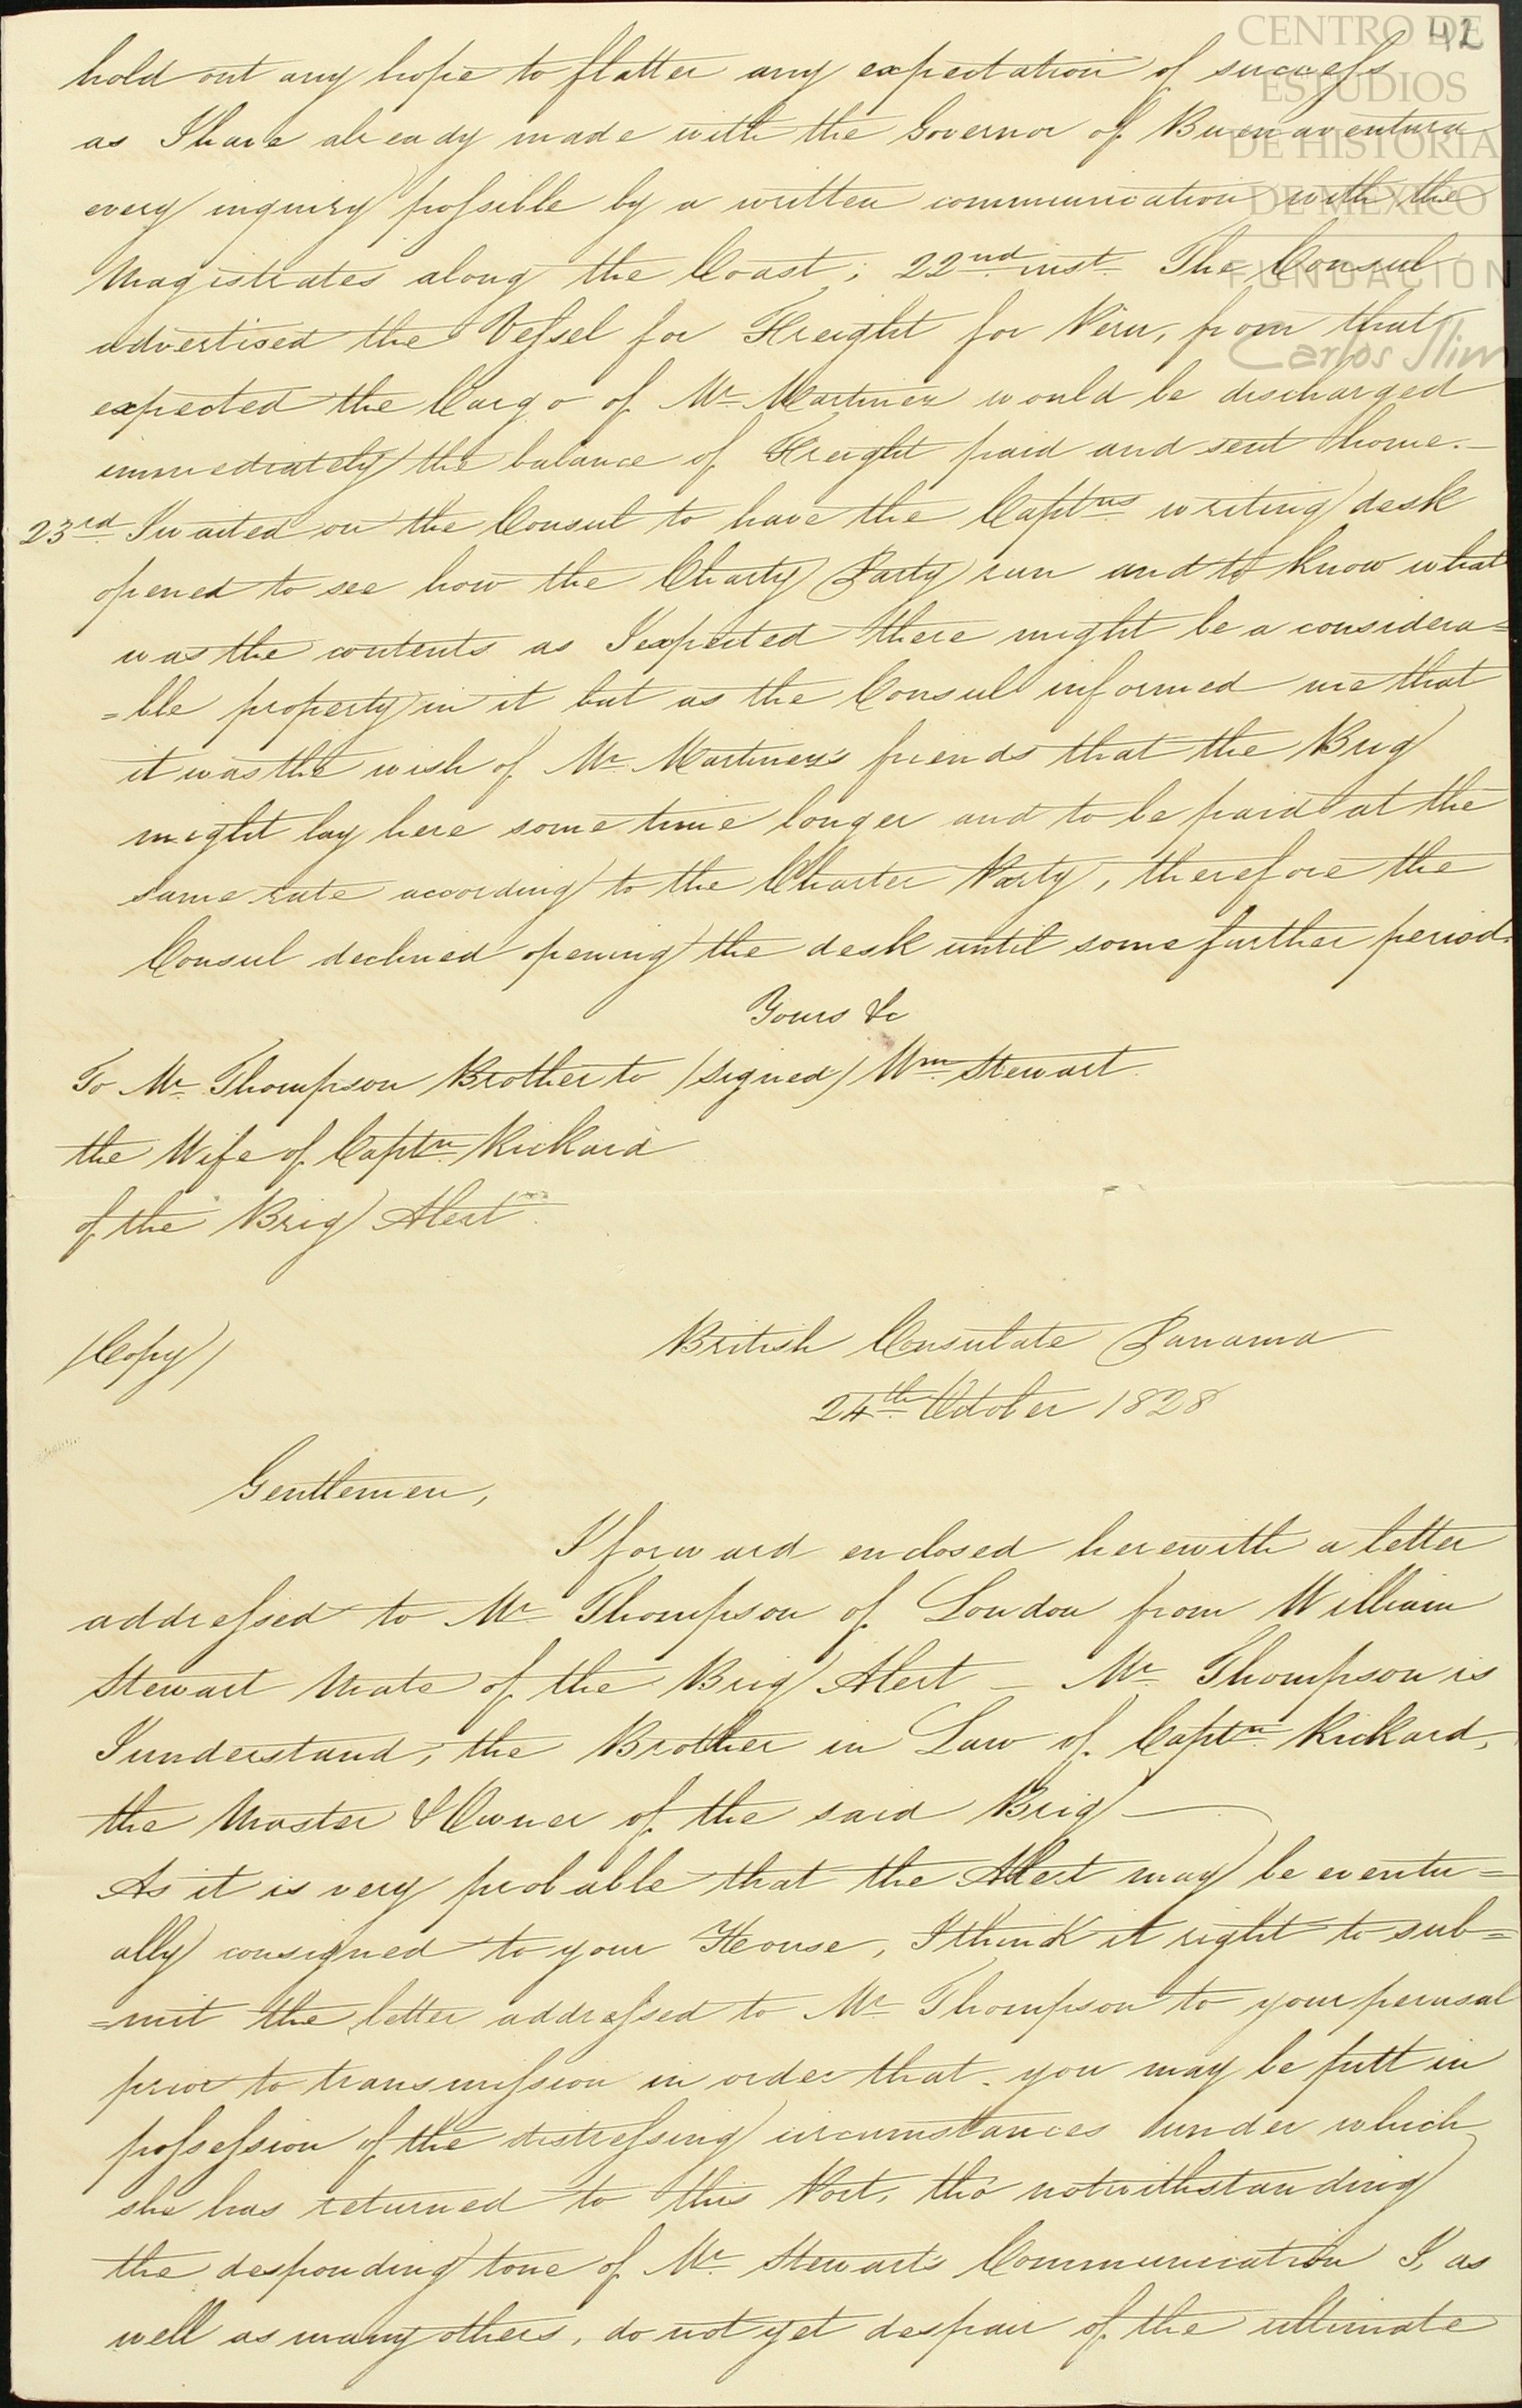 42
CENTRO DE
ESTUDIOS
DE HISTORIA
DE MEXICO
FUNDACIÓN
Carlos Slim
hold out any hope to flatter any expectation of success
as I have already made with the Governor of Buenaventura
every inquiry possible by a written communication with the
Magistrates along the Coast, 22nd inst. The Consul
advertised the Vessel for Freight for Peru, from that
expected the Cargo of Mr Martinez would be discharged
immediately the balance of Freight paid and sent home.—
23rd I waited on the Consul to have the Captns writing desk
opened to see how the Charty Party run and to know what
was the contents as I expected there might be a considera=
=ble property in it but as the Consul informed me that
it was the wish of Mr Martinez's friends that the Brig
might lay here some time longer and to be paid at the
same rate according to the Charter Party, therefore the
Consul declined opening the desk until some further period.
Yours &c
To Mr Thompson Brother to /signed/ Wm Stewart
the Wife of Captn Rickard
of the Brig Alert
/Copy/
British Consulate Panama
24th October 1828
Gentlemen,
I forward enclosed herewith a letter
addressed to Mr Thompson of London from William
Stewart Mate of the Brig Alert — Mr Thompson is
I understand, the Brother in Law of Captn Rickard,
the Master & Owner of the said Brig —
As it is very probable that the Alert may be eventu=
ally consigned to your House, I think it right to sub=
=mit the letter addressed to Mr Thompson to your perusal
prior to transmission in order that you may be putt in
possession of the distressing circumstances under which
she has returned to this Port, tho' notwithstanding
the desponding tone of Mr Stewart's Communication I, as
well as many others, do not yet despair of the ultimate